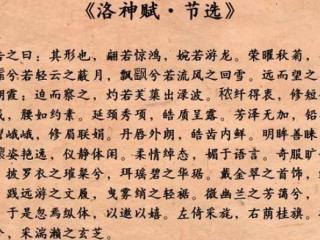 《洛神赋·节选》
告之曰：其形也，翩若惊鸿，婉若游龙。荣曜秋菊，
兮若轻云之蔽月，飘飖兮若流风之回雪。远而望之，
朝霞；迫而察之，灼若芙蕖出渌波。秾纤得衷，修短
，腰如约素。延颈秀项，皓质呈露。芳泽无加，铅
峨峨，修眉联娟。丹唇外朗，皓齿内鲜。明眸善睐，
姿艳逸，仪静体闲。柔情绰态，媚于语言。奇服旷
披罗衣之璀粲兮，珥瑶碧之华琚。戴金翠之首饰，
，践远游之文履，曳雾绡之轻裾。微幽兰之芳蔼兮，
于是忽焉纵体，以遨以嬉。左倚采旄，右荫桂旗。
兮，采湍濑之玄芝。